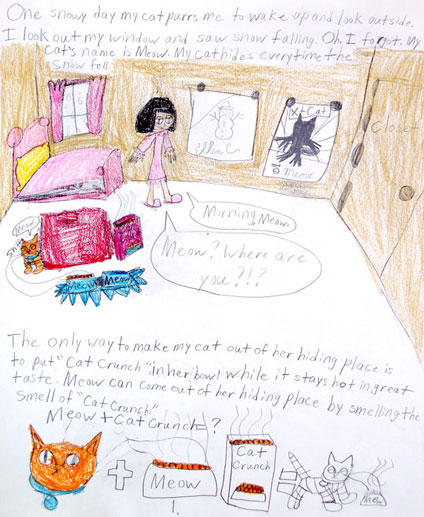 One snowy day my cat purrs me to wake up and look outside.
I look out my window and saw snow falling. Oh, I forgot. My
cat's name is Meow. My cat hides everytime the
snow fell.
X+Cat
Closet
Ellen C.
Meow
Morning, Meow
Meow? Where are
you?!?
Meow
Sniff
Meow Meow
The only way to make my cat out of her hiding place is
to put "Cat Crunch" in her bowl while it stays hot in great
taste. Meow can come out of her hiding place by smelling the
smell of "Cat Crunch."
Meow + Cat Crunch = ?
+
Meow
Cat
Crunch
=
Meow
1.